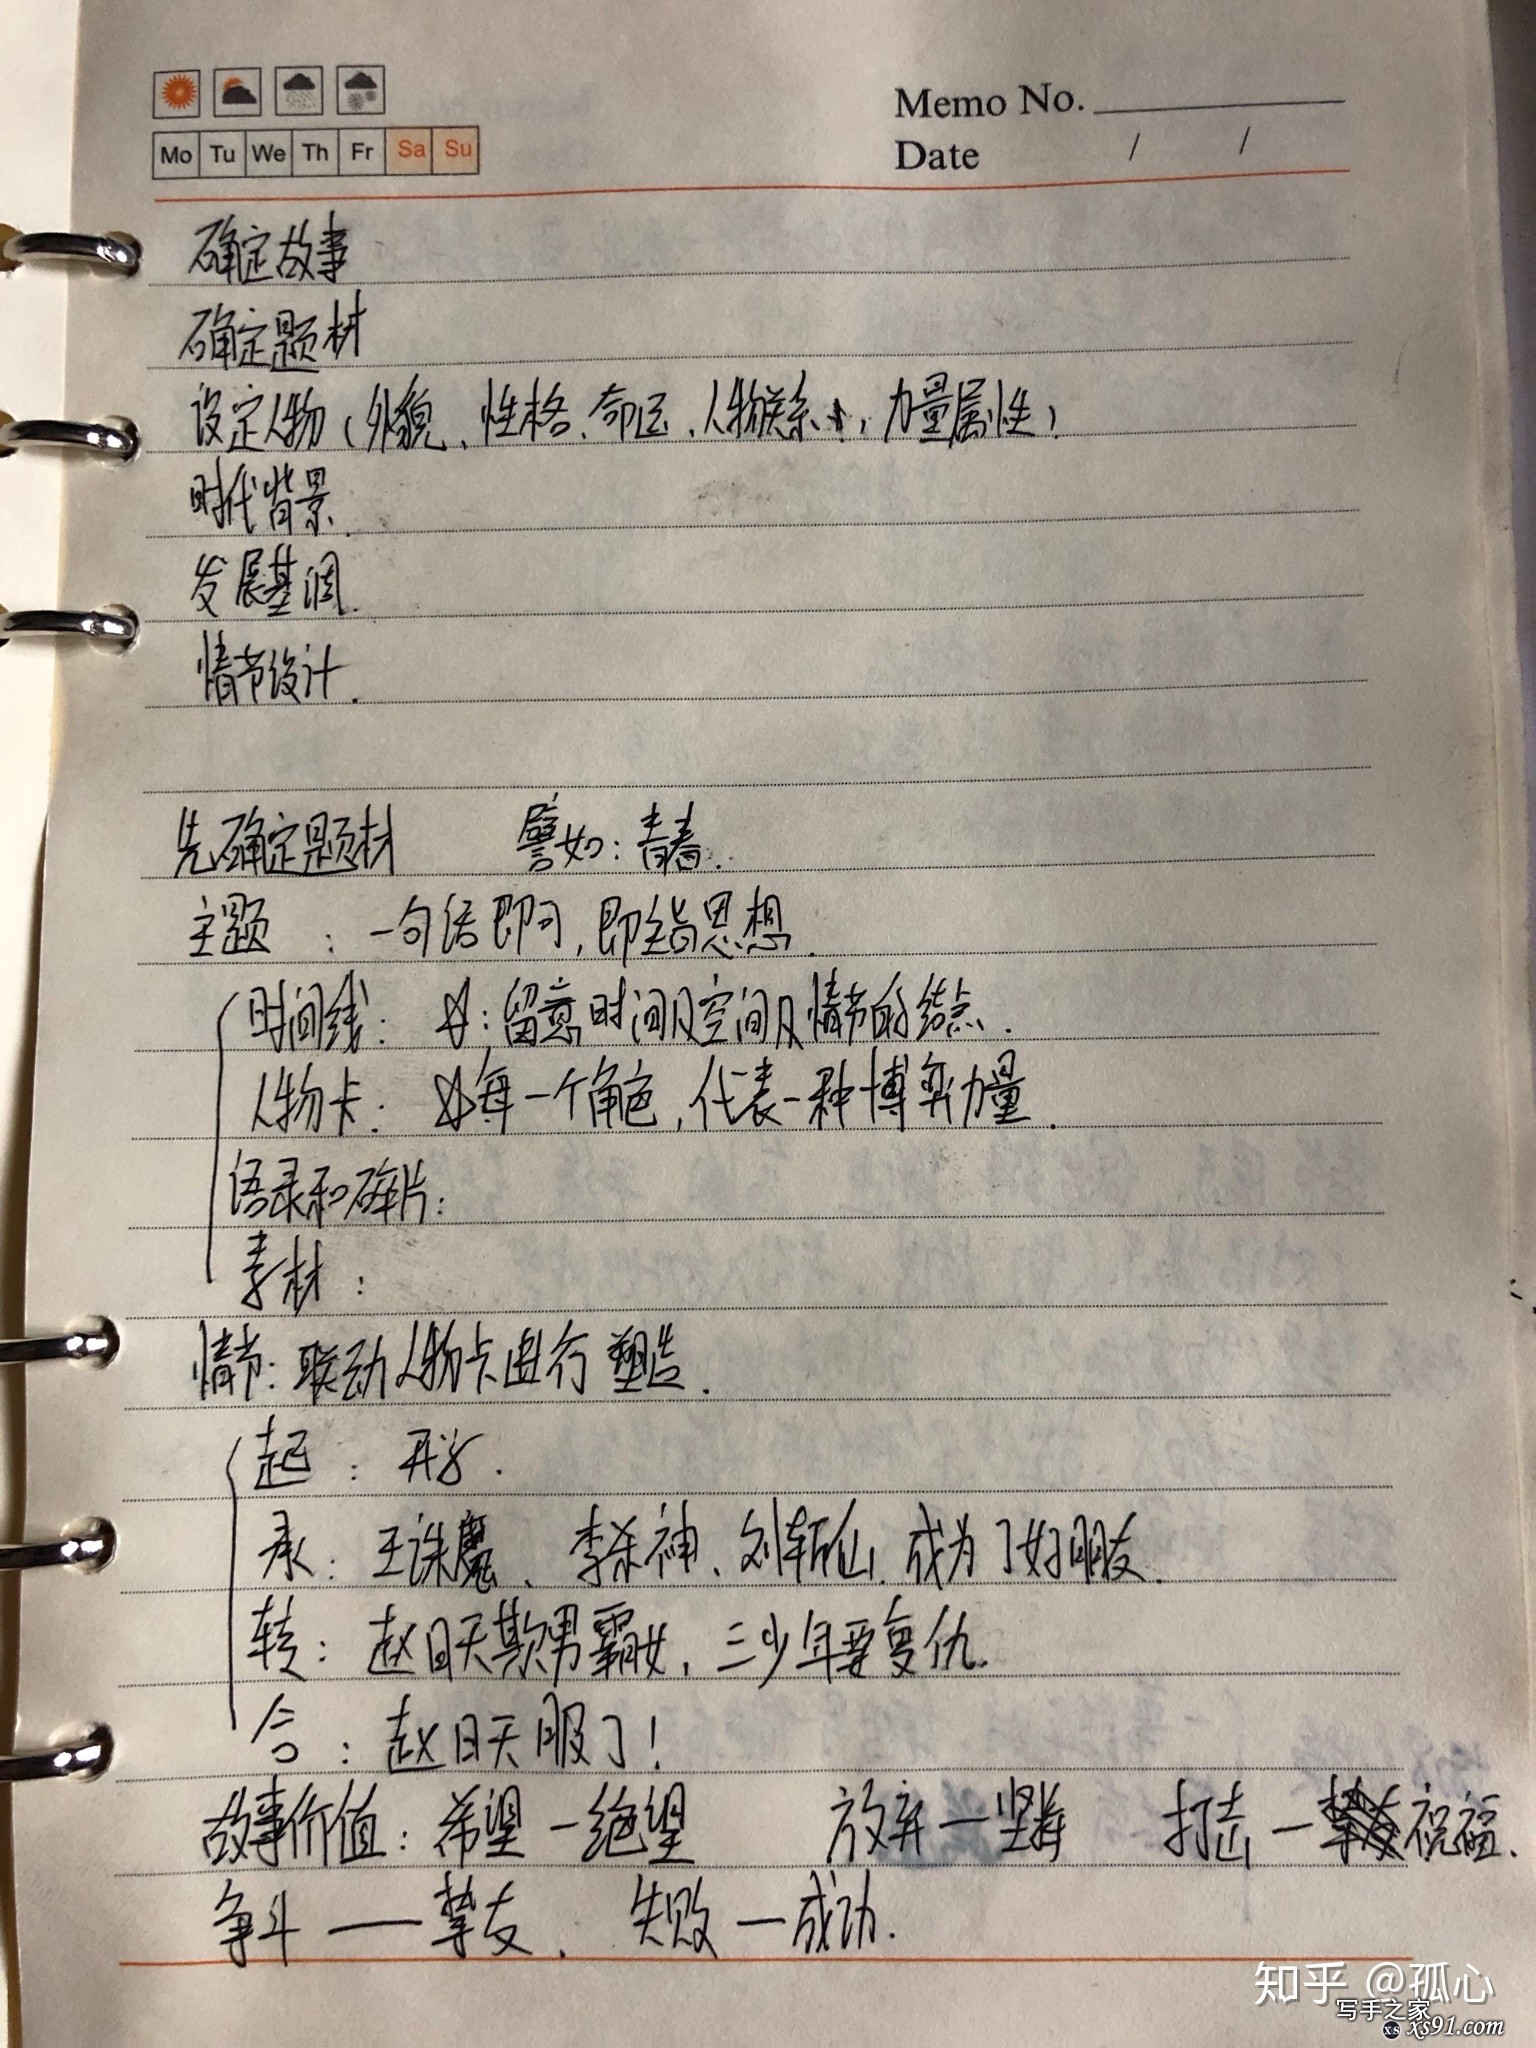 Memo No.
Mo Tu We Th Fr Sa Su
Date / /
确定故事
确定题材
设定人物(外貌、性格、命运、人物关系,力量属性)
时代背景.
发展基调.
情节设计.
先确定题材 譬如:青春.
主题:一句话即可,即主旨思想.
时间线:留意时间及空间及情节的结点.
人物卡:每一个角色,代表一种博弈力量.
语录和碎片:
素材:
情节:联动人物卡进行塑造.
起:开学.
承:王诛魔、李杀神、刘斩仙成为了好朋友.
转:赵日天欺男霸女,三少年要复仇.
合:赵日天服了!
故事价值:希望—绝望 放弃—坚持 打击—祝福.
争斗——挚友. 失败—成功.
知乎 @孤心
写手之家
xs xs91.com